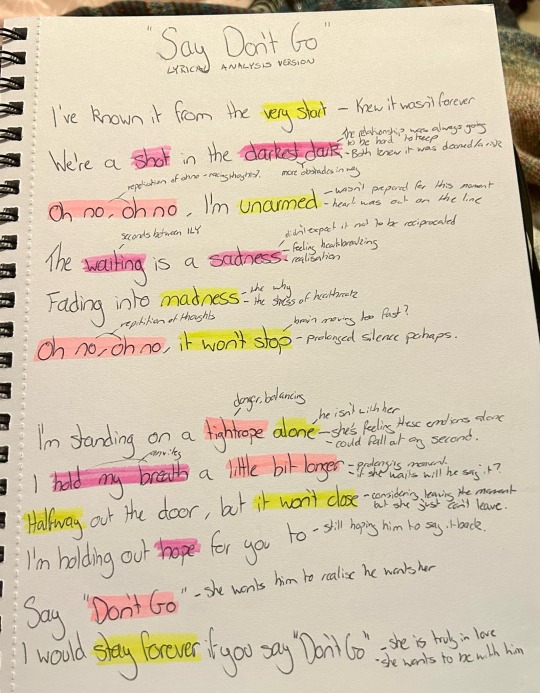 "Say Don't Go"
LYRICAL ANALYSIS VERSION
I've known it from the very start - Knew it wasn't forever
We're a shot in the darkest dark - the relationship was always going to be hard to keep
- Both knew it was doomed/a risk
more obstacles in way
repetition of ohno - racing thoughts?
Oh no, oh no, I'm unarmed - wasn't prepared for this moment
- heart was out on the line
seconds between ILY
didn't expect it not to be reciprocated
The waiting is a sadness - feeling heartbreaking
- realisation
Fading into madness - the why
- the stress of
repitition of thoughts
brain moving too fast?
Oh no, oh no, it won't stop - prolonged silence pehaps.
danger, balancing
I'm standing on a tightrope alone - he isn't with her
- she's feeling these emotions alone
- could fall at any second.
anxiety
I hold my breath a little bit longer - prolonging moment.
if she waits will he say it?
Halfway out the door, but it won't close - considering leaving the moment
but she just can't leave.
I'm holding out hope for you to - still hoping him to say it back.
Say "Don't Go" - she wants him to realise he wants her
I would stay forever if you say "Don't Go" - she is truly in love
- she wants to be with him